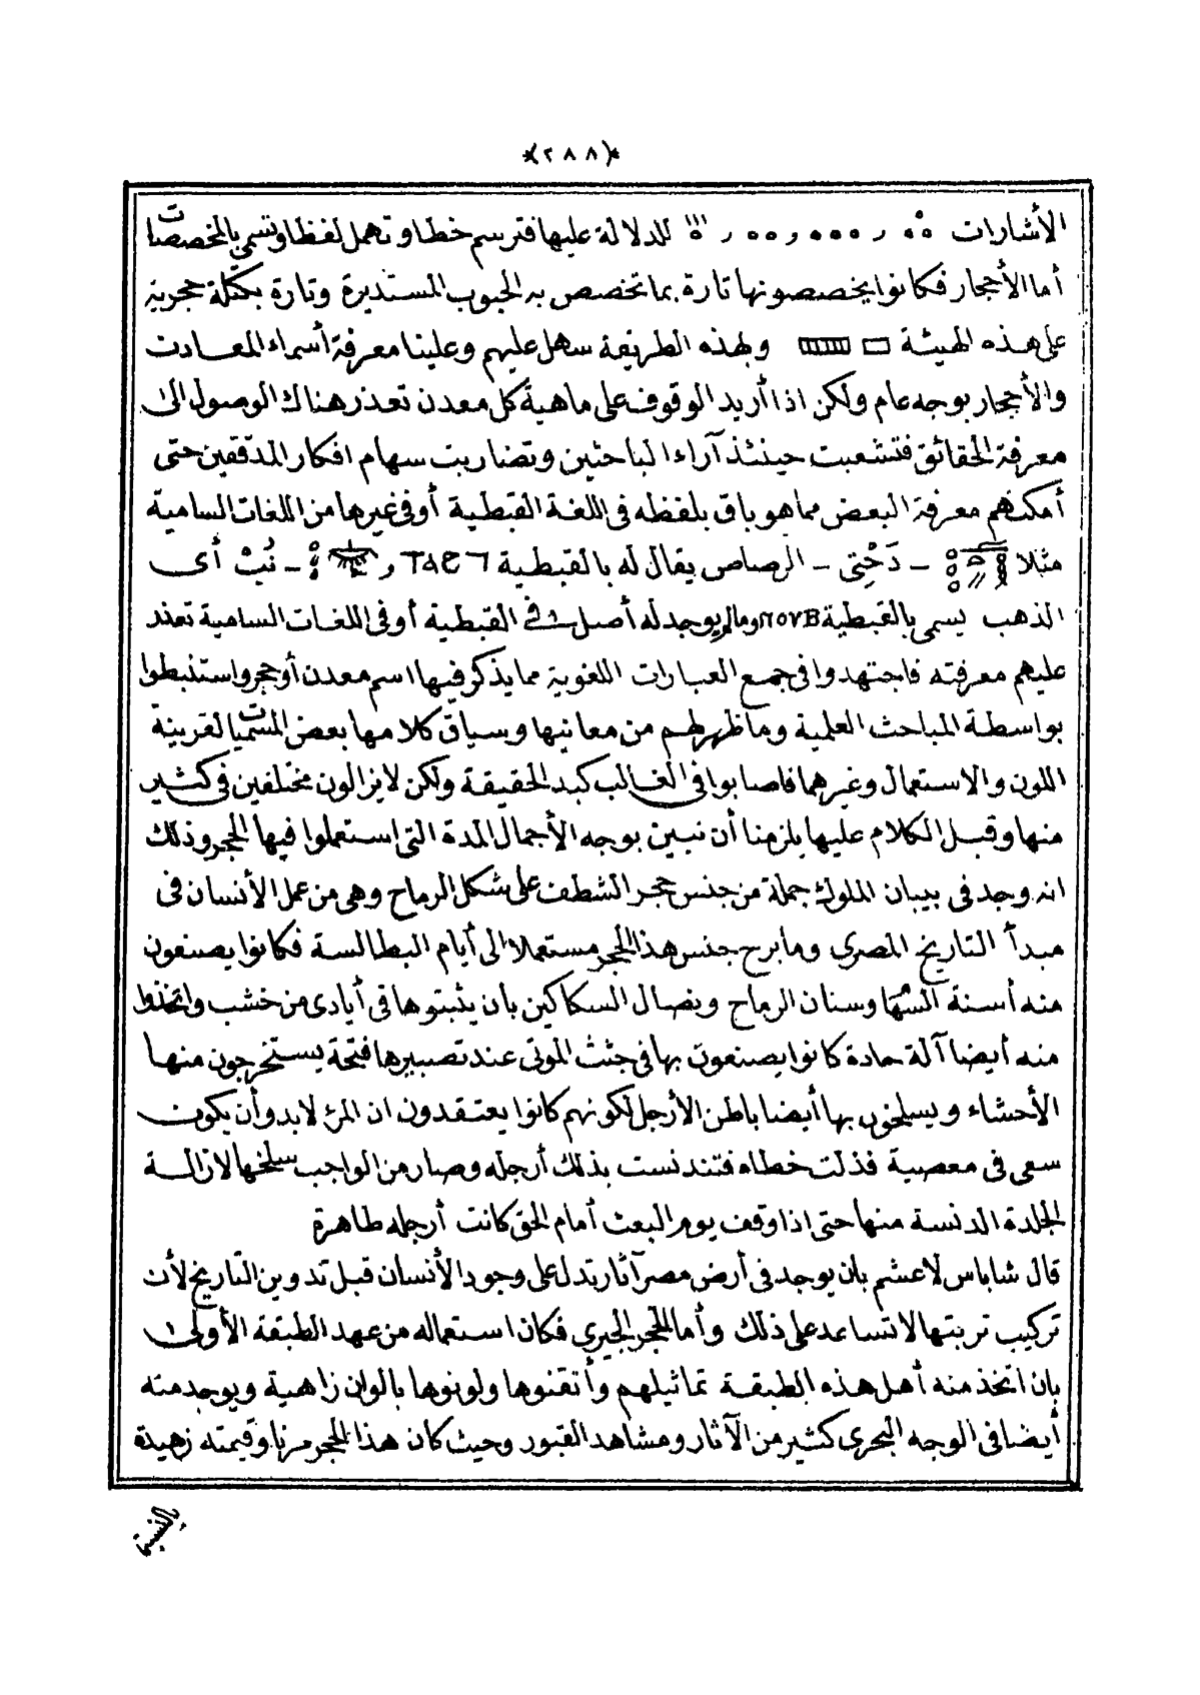 *(٢٨٨)*
الأشارات ، ، ، للدلالة عليها فترسم خطا وتهمل لفظا وتسمى بالمخصصات
أما الأحجار فكانوا يخصصونها تارة بما تخصص به الحبوب المستديرة وتارة بكتلة حجرية
على هذه الهيئة وبهذه الطريقة سهل عليهم وعلينا معرفة أسماء المعادن
والأحجار بوجه عام ولكن اذا أريد الوقوف على ماهية كل معدن تعذر هناك الوصول الى
معرفة الحقائق فتشعبت حينئذ آراء الباحثين وتضاربت سهام افكار المدققين حتى
أمكنهم معرفة البعض مما هو باق بلفظه فى اللغة القبطية أو فى غيرها من اللغات السامية
مثلا - دَحْتِى - الرصاص يقال له بالقبطية ⲧⲁϩⲧ و - نُبْ أى
الذهب يسمى بالقبطية ⲛⲟⲩⲃ ومالم يوجد له أصل فى القبطية أو فى اللغات السامية تعذر
عليهم معرفته فاجتهدوا فى جمع العبارات اللغوية مما يذكر فيها اسم معدن أو حجر واستنبطوا
بواسطة المباحث العلمية وما ظهر لهم من معانيها وسياق كلامها بعض المسميات لقرينة
اللون والاستعمال وغيرهما فاصابوا فى الغالب كبد الحقيقة ولكن لا يزالون مختلفين فى كثير
منها وقبل الكلام عليها يلزمنا أن نبين بوجه الأجمال المدة التى استعملوا فيها الحجر وذلك
انه وجد فى بيبان الملوك جملة من جنس حجر الشطف على شكل الرماح وهى من عمل الأنسان فى
مبدأ التاريخ المصري وما برح جنس هذا الحجر مستعملا الى أيام البطالسة فكانوا يصنعون
منه أسنة السهام وسنان الرماح ونصال السكاكين بان يثبتوها فى أيادى من خشب واتخذوا
منه أيضا آلة حادة كانوا يصنعون بها فى جثث الموتى عند تصبيرها فتحة يستخرجون منها
الأحشاء ويسلخون بها أيضا باطن الأرجل لكونهم كانوا يعتقدون ان المرء لابد وأن يكون
سعى فى معصية فذلت خطاه فتندنست بذلك أرجله وصار من الواجب سلخها لازالة
الجلدة الدنسة منها حتى اذا وقف يوم البعث أمام الحق كانت أرجله طاهرة
قال شاباس لا عشم بان يوجد فى أرض مصر آثار تدل على وجود الأنسان قبل تدوين التاريخ لأن
تركيب تربتها لا تساعد على ذلك وأما الحجر الجيري فكان استعماله من عهد الطبقة الأولى
بان اتخذ منه أهل هذه الطبقة تماثيلهم وأتقنوها ولونوها بالوان زاهية ويوجد منه
أيضا فى الوجه البحرى كثير من الآثار ومشاهد القبور وحيث كان هذا الحجر مرنا وقيمته زهيدة
بالنسبة